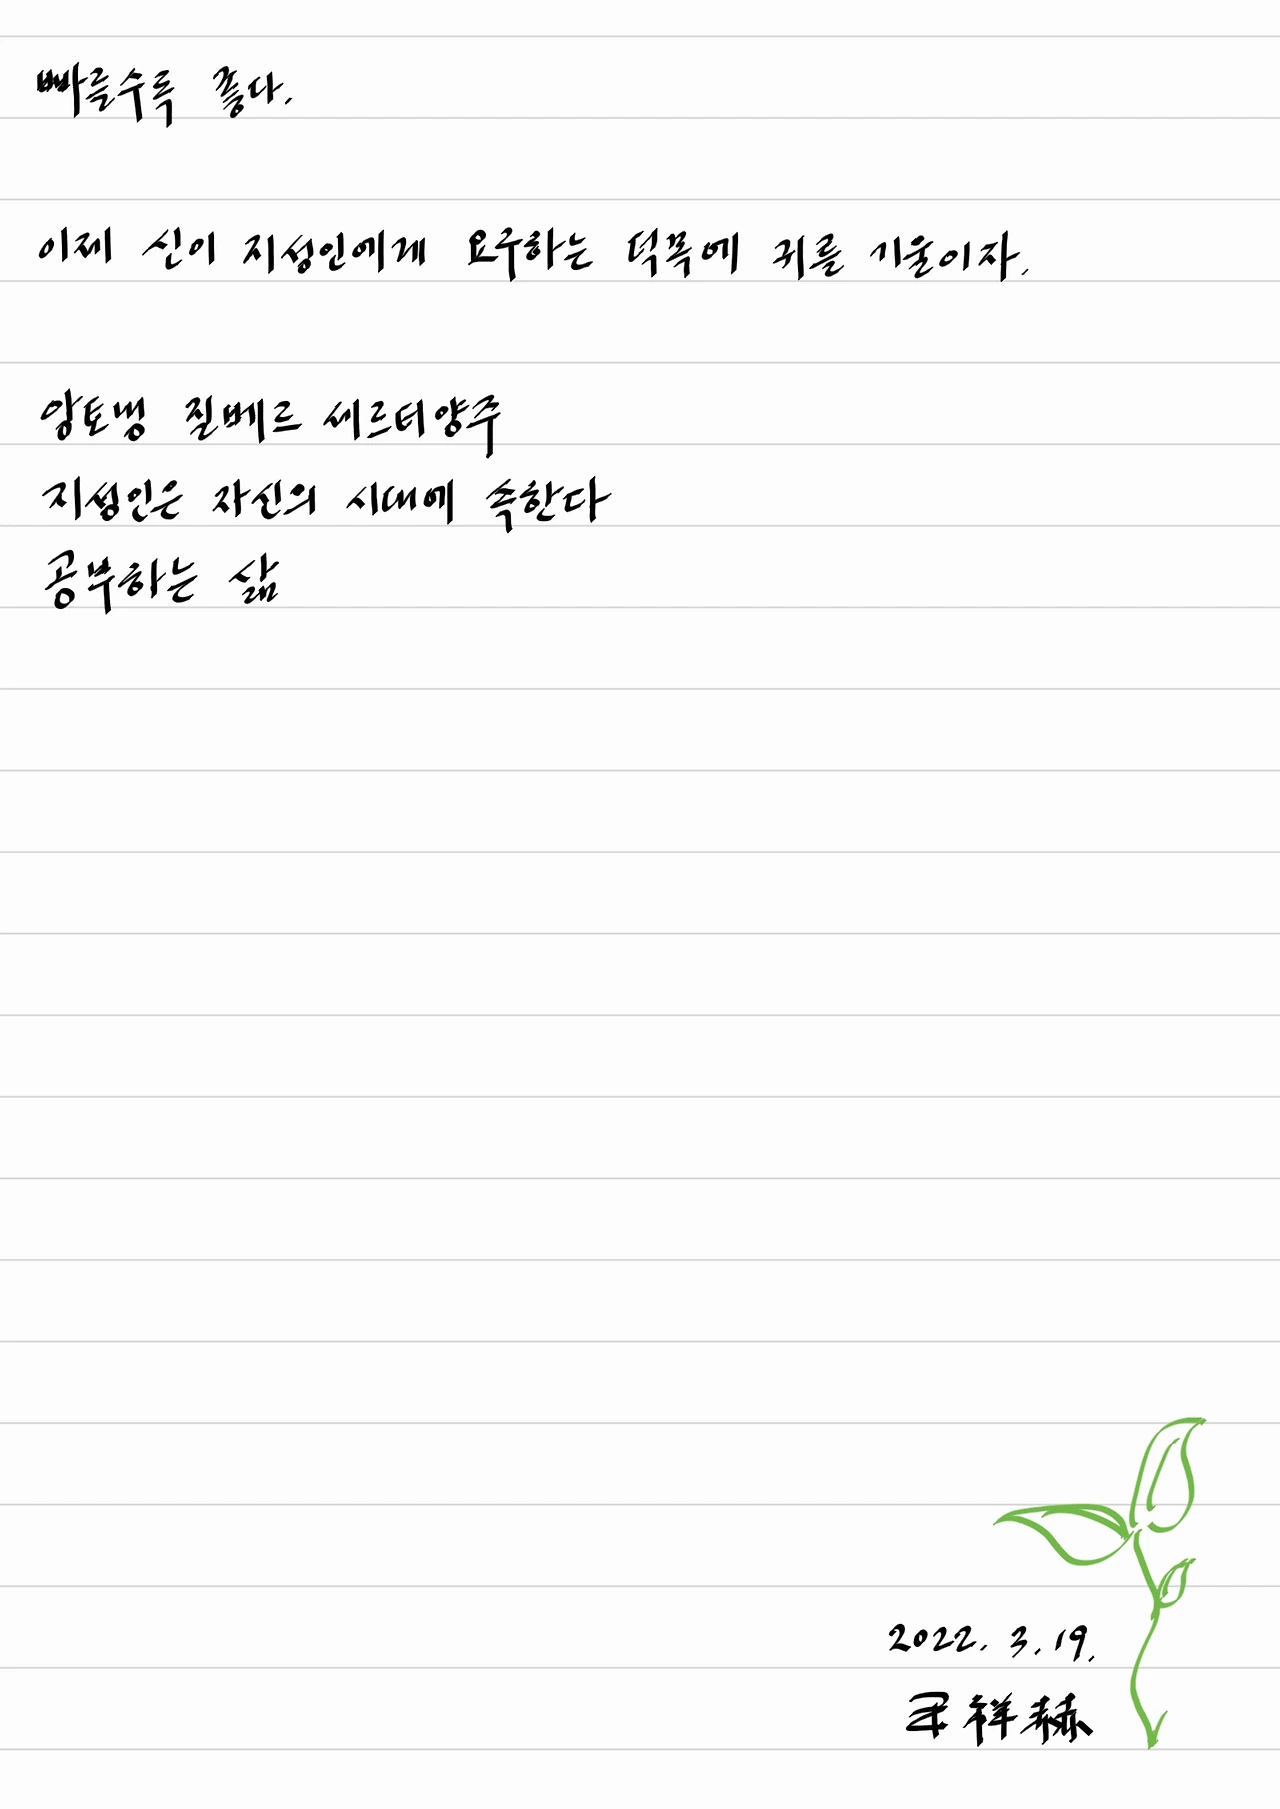 빠를수록 좋다.
이제 신이 지성인에게 요구하는 덕목에 귀를 기울이자.
앙토냉 질베르 세르티양주
지성인은 자신의 시대에 속한다
공부하는 삶
2022. 3. 19.
祥赫